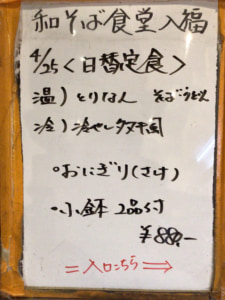 和そば食堂入福
4/25<日替定食>
温)とりなん そばうどん
冷)冷やしタヌキ
・おにぎり(さけ)
・小鉢 2品付
¥880.-
=入口こちら⇒